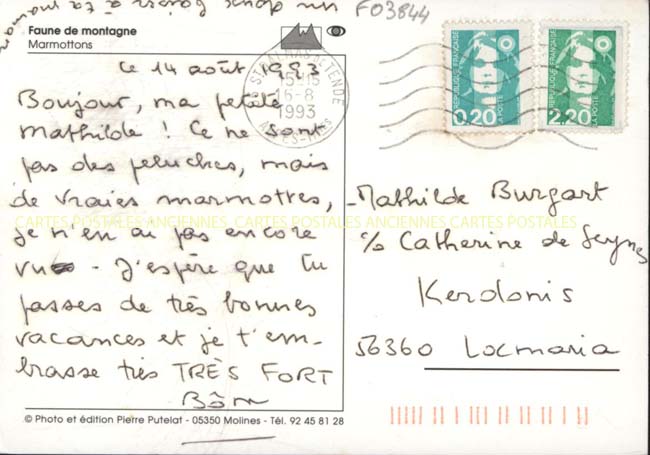 un doux baiser à ta maman
F03844
Faune de montagne
Marmottons
Ce 14 août 1993
Bonjour, ma petite
Mathilde ! Ce ne sont
pas des peluches, mais
de vraies marmottes,
je n'en ai pas encore
vu - J'espère que tu
passes de très bonnes
vacances et je t'em-
brasse très TRÈS FORT
© Photo et édition Pierre Putelat - 05350 Molines - Tél. 92 45 81 28
DE TENDE
15-15
16-8
1993
REPUBLIQUE FRANÇAISE
0,20
LA POSTE
REPUBLIQUE FRANÇAISE
2,20
LA POSTE
Mathilde Burgart
c/o Catherine de Seynes
Kerdonis
56360 Locmaria
CARTES POSTALES ANCIENNES CARTES POSTALES ANCIENNES CARTES POSTALES